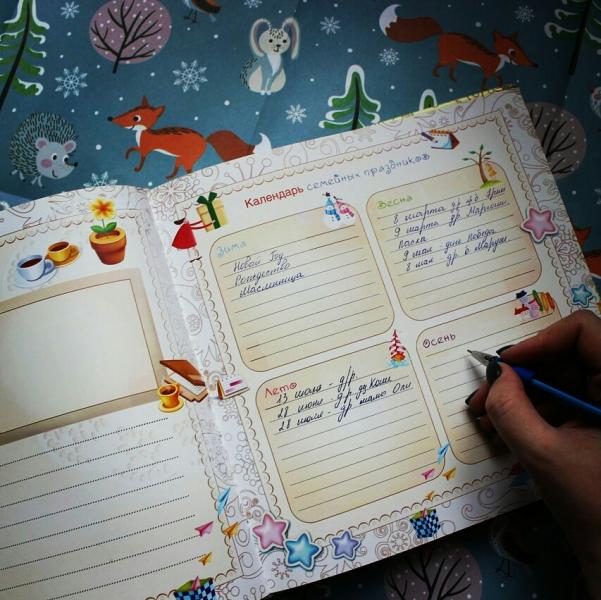 Календарь семейных праздников
Зима
Новый Год
Рождество
Масленница
Весна
8 марта др
9 марта др.
Пасха
9 мая - день Победы
8 мая - др. б. Маруси
Лето
13 июля - д/р.
28 июня - др. д. Коли
28 июля - др мамы Оли
Осень